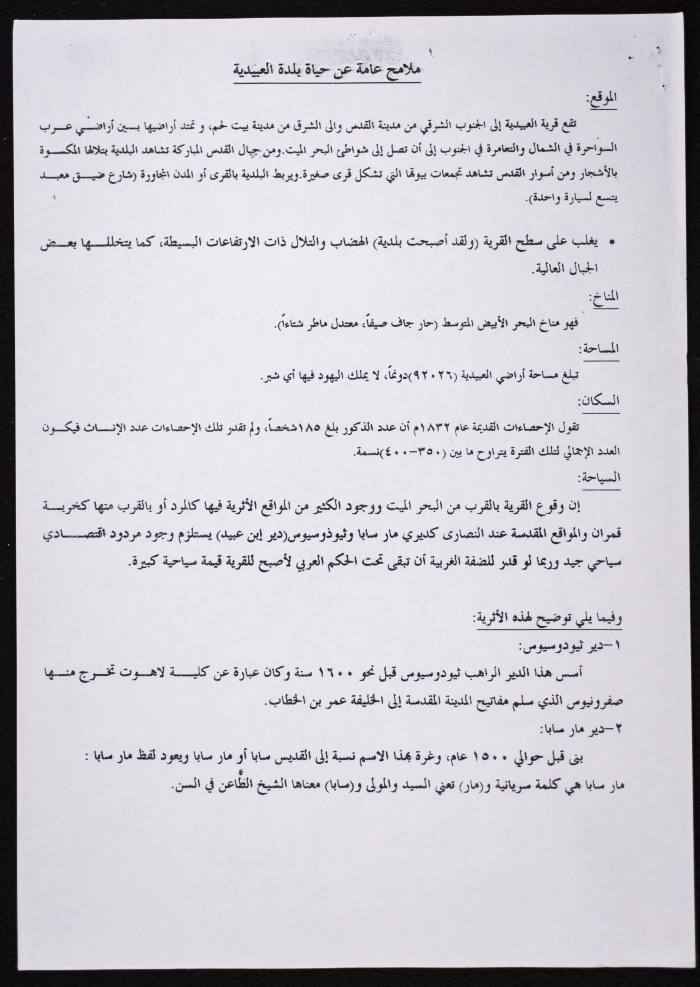 ملامح عامة عن حياة بلدة العبيدية
الموقع:
تقع قرية العبيدية إلى الجنوب الشرقي من مدينة القدس والى الشرق من مدينة بيت لحم، و تمتد أراضيها بين أراضي عرب
السواحرة في الشمال والتعامرة في الجنوب إلى أن تصل إلى شواطئ البحر الميت.ومن جبال القدس المباركة تشاهد البلدية بتلالها المكسوة
بالأشجار ومن أسوار القدس تشاهد تجمعات بيوتها التي تشكل قرى صغيرة.ويربط البلدية بالقرى أو المدن المجاورة (شارع ضيق معبد
يتسع لسيارة واحدة).
• يغلب على سطح القرية (ولقد أصبحت بلدية) الهضاب والتلال ذات الارتفاعات البسيطة، كما يتخللها بعض
الجبال العالية.
المناخ:
فهو مناخ البحر الأبيض المتوسط (حار جاف صيفاً، معتدل ماطر شتاءاً).
المساحة:
تبلغ مساحة أراضي العبيدية (٩٢٠٢٦)دونماً، لا يملك اليهود فيها أي شبر.
السكان:
تقول الإحصاءات القديمة عام ١٨٣٢م أن عدد الذكور بلغ ١٨٥شخصاً، ولم تقدر تلك الإحصاءات عدد الإناث فيكون
العدد الإجمالي لتلك الفترة يتراوح ما بين (٣٥٠-٤٠٠)نسمة.
السياحة:
إن وقوع القرية بالقرب من البحر الميت ووجود الكثير من المواقع الأثرية فيها كالمرد أو بالقرب منها كخربة
قمران والمواقع المقدسة عند النصارى كديري مار سابا وثيوذوسيوس(دير إبن عبيد) يستلزم وجود مردود اقتصادي
سياحي جيد وربما لو قدر للضفة الغربية أن تبقى تحت الحكم العربي لأصبح للقرية قيمة سياحية كبيرة.
وفيما يلي توضيح لهذه الأثرية:
١-دير ثيودوسيوس:
أسس هذا الدير الراهب ثيودوسيوس قبل نحو ١٦٠٠ سنة وكان عبارة عن كلية لاهوت تخرج منها
صفرونيوس الذي سلم مفاتيح المدينة المقدسة إلى الخليفة عمر بن الخطاب.
٢-دير مار سابا:
بنى قبل حوالي ١٥٠٠ عام، وغرة بهذا الاسم نسبة إلى القديس سابا أو مار سابا ويعود لفظ مار سابا :
مار سابا هي كلمة سريانية و(مار) تعني السيد والمولى و(سابا) معناها الشيخ الطَّاعن في السن.